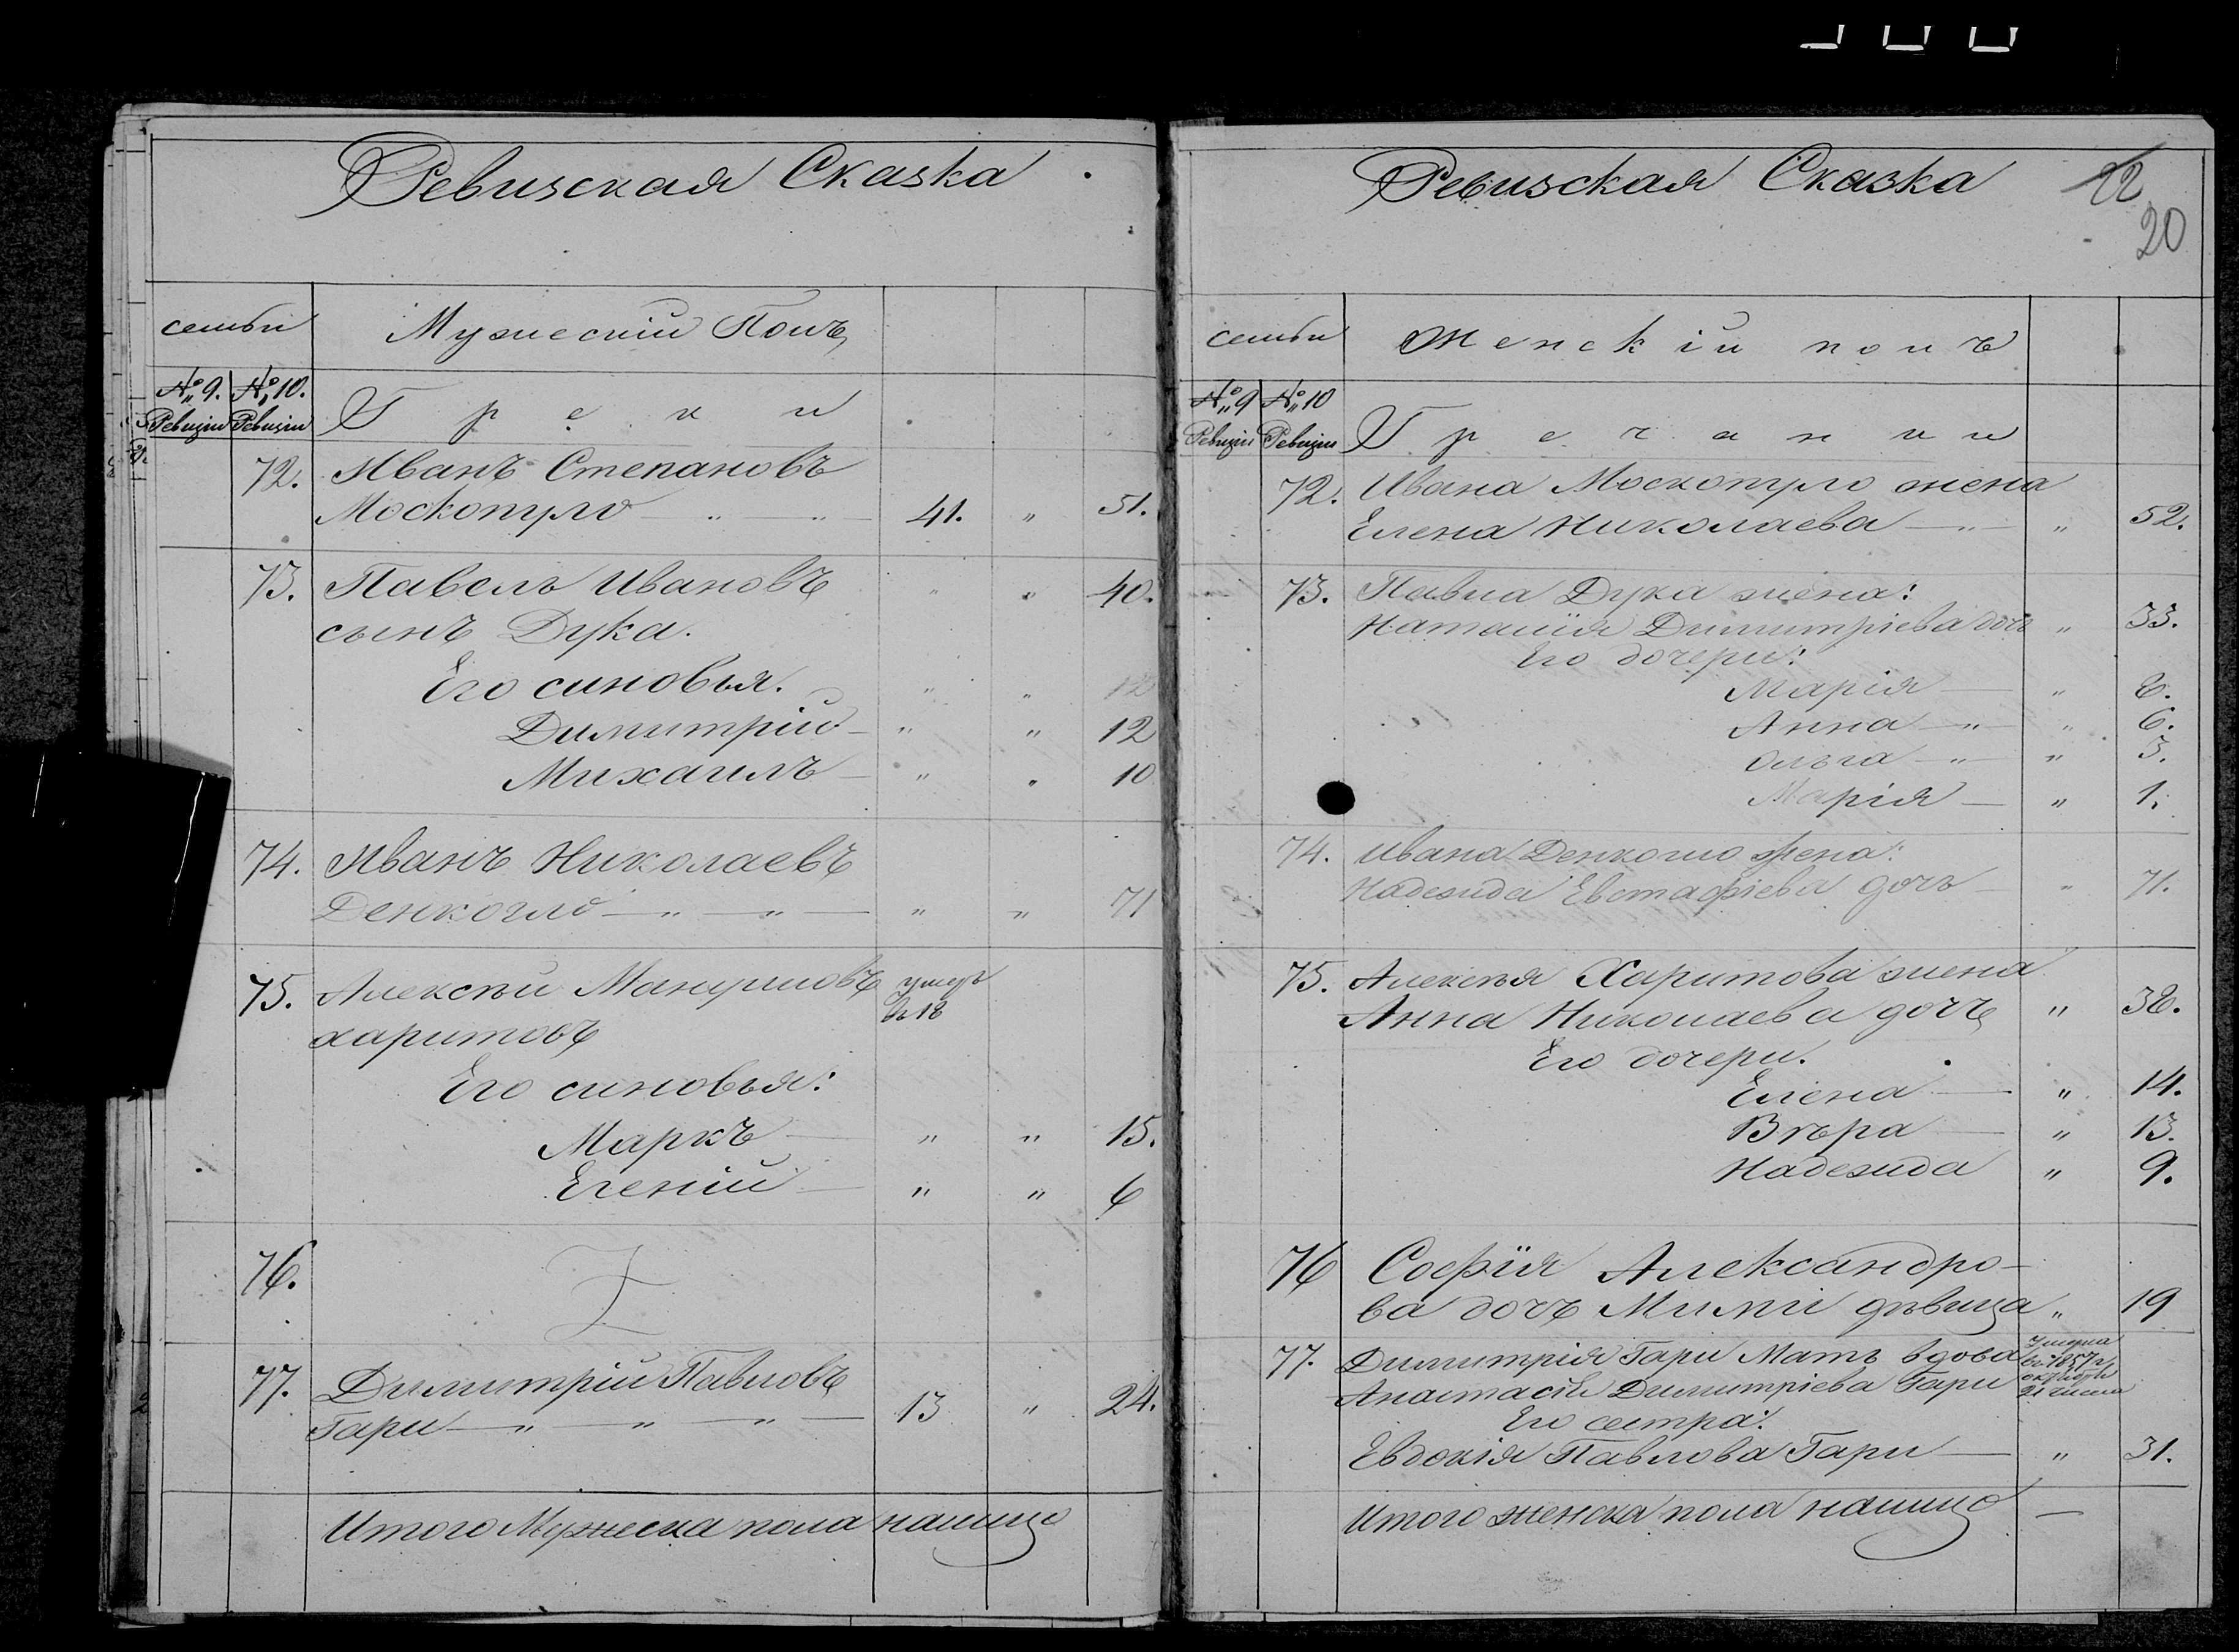 Ревизская Сказка
семьи
Мужескій Полъ
№ 9. № 10.
Ревизіи Ревизіи
Греки
72. Иванъ Степановъ
Москопуло — „ — „ — 41. „ 51.
73. Павелъ Ивановъ „ „ 40.
сынъ Дука.
Его синовья. „ „ 12
Димитрій — „ „ 12
Михаилъ — „ „ 10
74. Иванъ Николаевъ
Денкогло — „ — „ — „ „ 71
75. Алексѣй Мануиловъ умеръ
харитовъ въ 18
Его синовья:
Маркъ — „ „ 15.
Егеній — „ „ 6
76.
77. Димитрій Павловъ
Гари — „ — „ — „ — 13 „ 24.
Итого Мужеска пола налицо
Ревизская Сказка 22
20
семьи
Женскій полъ
№ 9 № 10
Ревизіи Ревизіи
Гречанки
72. Ивана Москопуло жена
Елена Николаева — „ — „ 52.
73. Павла Дука жена:
Наталія Димитріева дочъ „ 33.
Его дочери:
Марія — „ 8.
Анна — „ „ 6.
Ольга — „ — „ 3.
Марія — „ 1.
74. Ивана Денкогло жена:
Надежда Евстафіева дочъ — „ 71.
75. Алексѣя Харитова жена
Анна Николаева дочъ „ 38.
Его дочери.
Елена — „ 14.
Вѣра — „ 13.
Надежда „ 9.
76 Софія Александро-
ва дочъ Мими дѣвица „ 19
77. Димитрія Гари Мать вдова Умерла
въ 1857 г.
Анастасія Димитріева Гари октября
21 числа
Его сестра:
Евдокія Павлова Гари — „ 31.
Итого женска пола налицо —